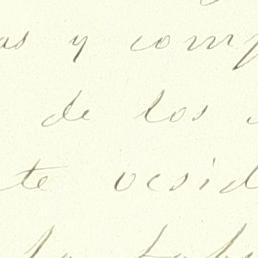 as y comp
de los
te ocsid
la